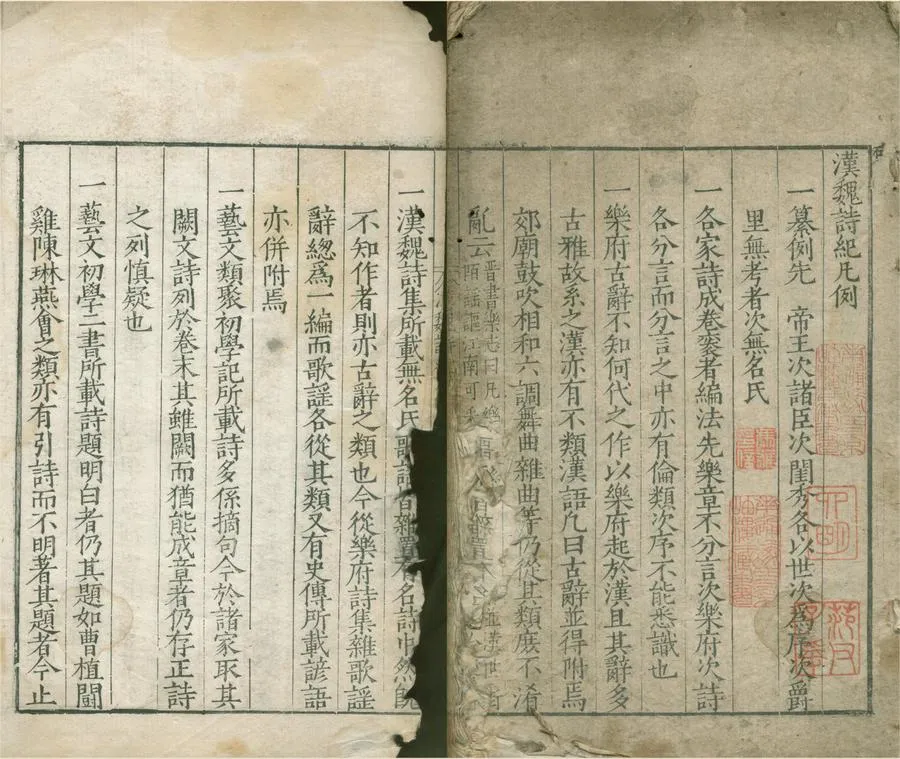 漢魏詩紀凡例
一纂例先 帝王次諸臣次閨秀各以世次爲序次爵
里無考者次無名氏
一各家詩成卷袠者編法先樂章不分言次樂府次詩
各分言而分言之中亦有倫類次序不能悉識也
一樂府古辭不知何代之作以樂府起於漢且其辭多
古雅故系之漢亦有不類漢語凡曰古辭並得附焉
郊廟鼓吹相和六調舞曲雜曲等仍從其類庻不淆
亂云 晉書樂志曰凡樂
謡謳江南可采
一漢魏詩集所載無名氏歌謡皆雜置有名詩中然既
不知作者則亦古辭之類也今從樂府詩集雜歌謡
辭緫爲一編而歌謡各從其類又有史傳所載諺語
亦併附焉
一藝文類聚初學記所載詩多係摘句今於諸家取其
闕文詩列於卷末其雖闕而猶能成章者仍存正詩
之列慎疑也
一藝文初學二書所載詩題明白者仍其題如曹植鬪
雞陳琳燕會之類亦有引詩而不明著其題者今止